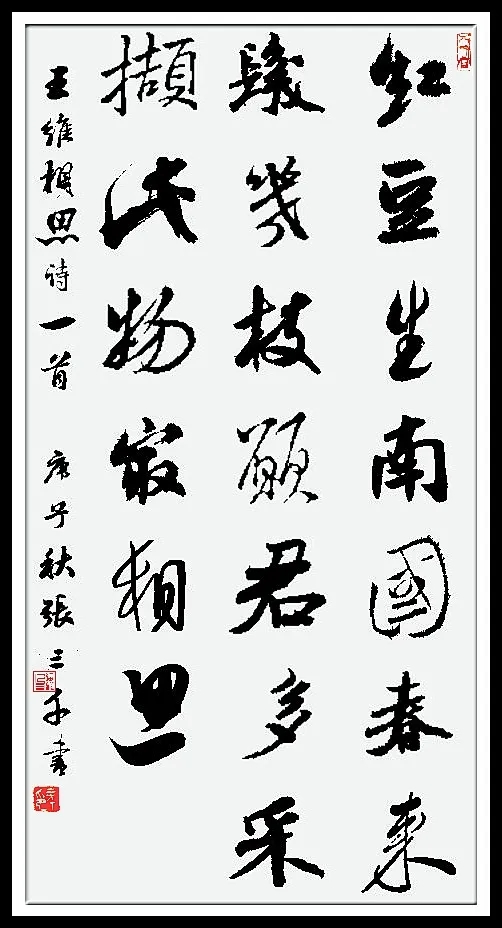 紅豆生南國春来
發幾枝願君多采
擷此物最相思
王維相思诗一首 庚子秋張三千書